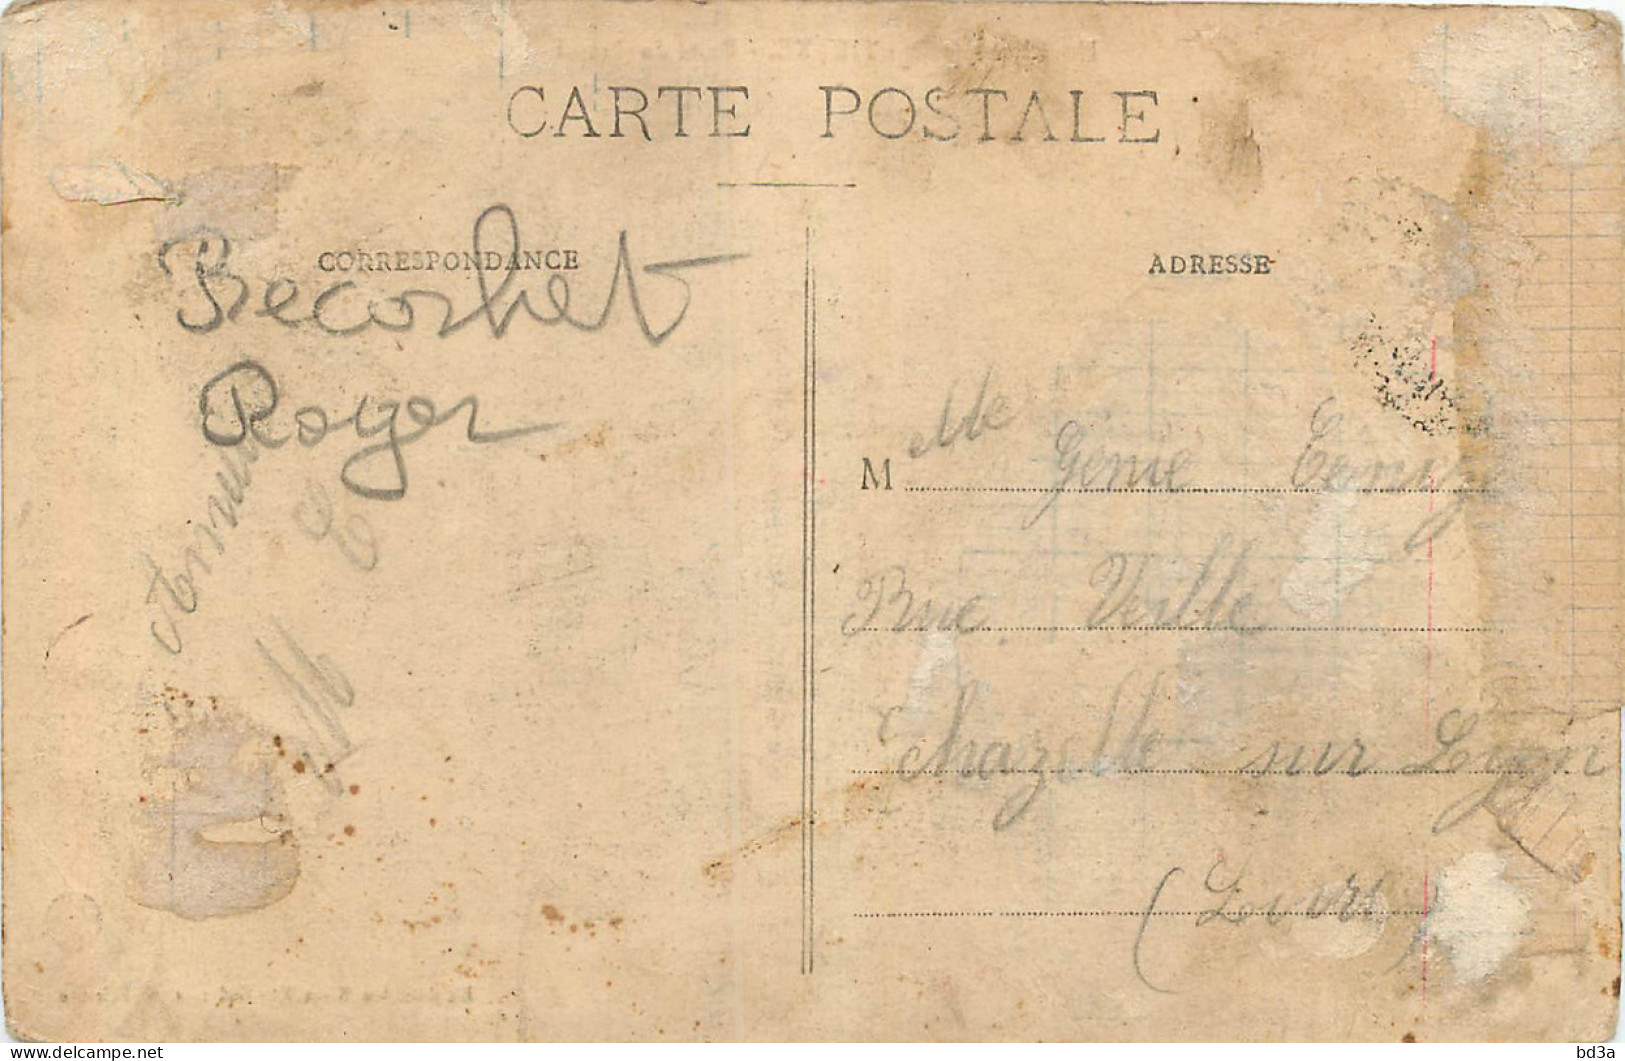 CARTE POSTALE
CORRESPONDANCE
Recorbet
Roger
ADRESSE
M elle Génie
Rue Veille
Chazelle sur Lyon
(Loire)
bd3a